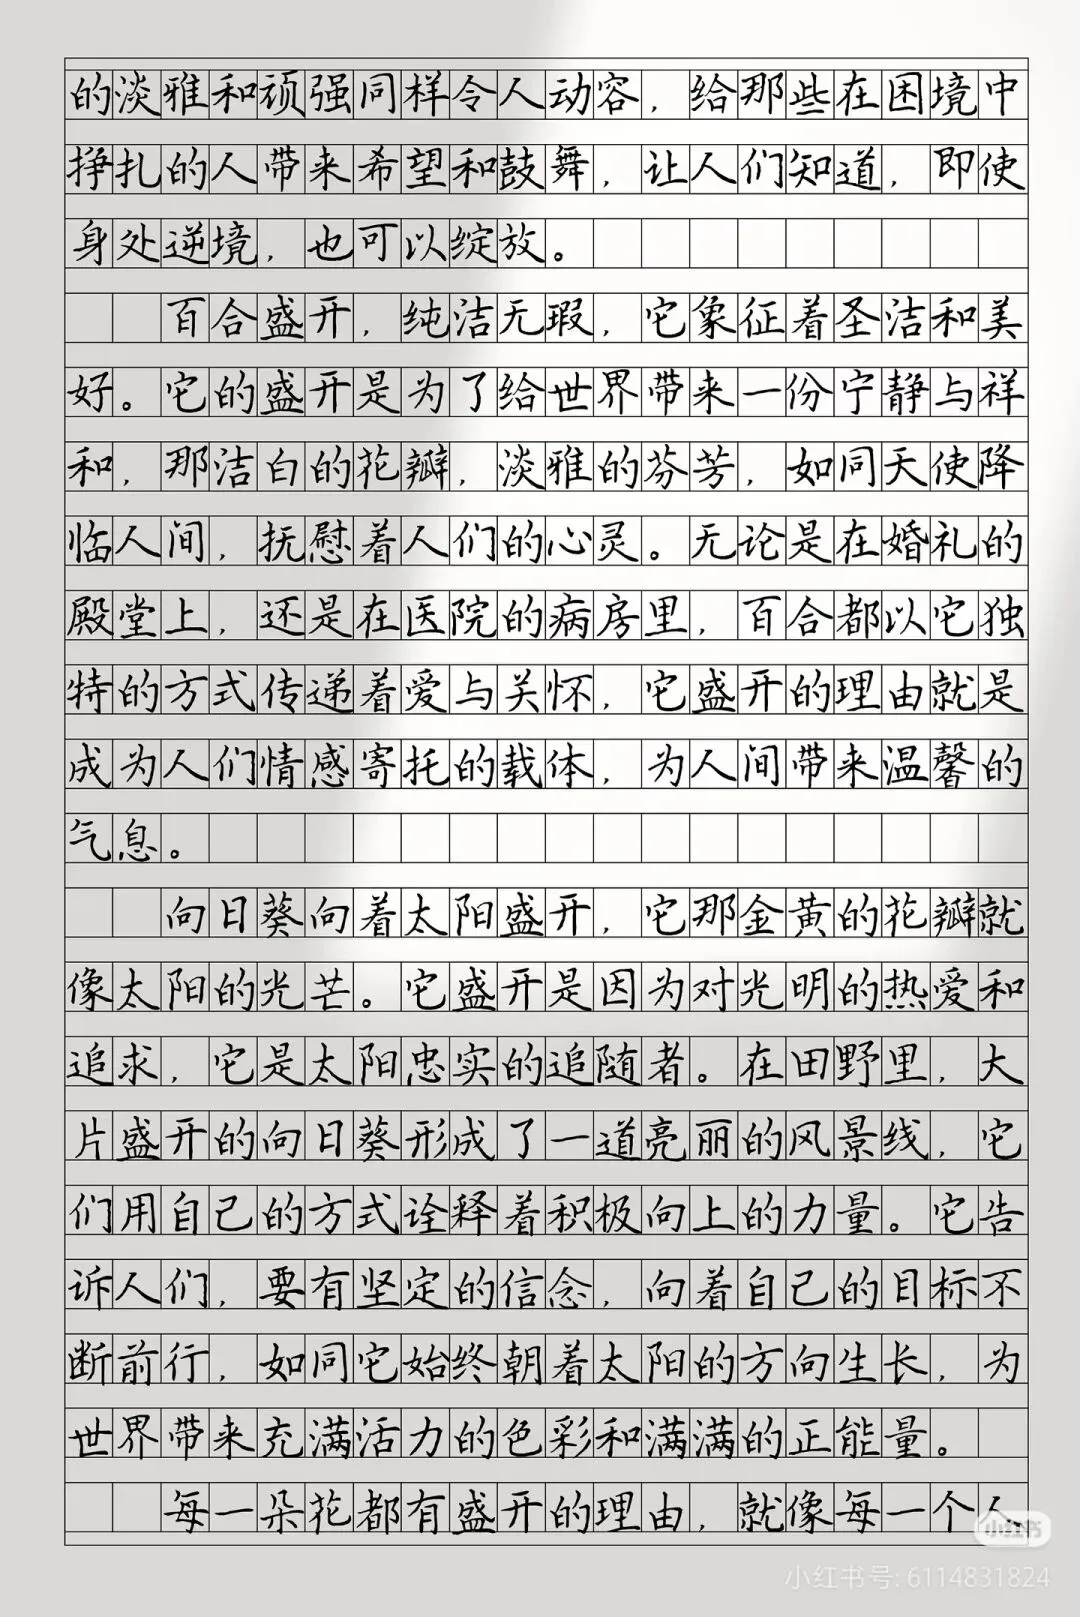 的淡雅和顽强同样令人动容，给那些在困境中
挣扎的人带来希望和鼓舞，让人们知道，即使
身处逆境，也可以绽放。
百合盛开，纯洁无瑕，它象征着圣洁和美
好。它的盛开是为了给世界带来一份宁静与祥
和，那洁白的花瓣，淡雅的芬芳，如同天使降
临人间，抚慰着人们的心灵。无论是在婚礼的
殿堂上，还是在医院的病房里，百合都以它独
特的方式传递着爱与关怀，它盛开的理由就是
成为人们情感寄托的载体，为人间带来温馨的
气息。
向日葵向着太阳盛开，它那金黄的花瓣就
像太阳的光芒。它盛开是因为对光明的热爱和
追求，它是太阳忠实的追随者。在田野里，大
片盛开的向日葵形成了一道亮丽的风景线，它
们用自己的方式诠释着积极向上的力量。它告
诉人们，要有坚定的信念，向着自己的目标不
断前行，如同它始终朝着太阳的方向生长，为
世界带来充满活力的色彩和满满的正能量。
每一朵花都有盛开的理由，就像每一个人
小红书
小红书号: 6114831824